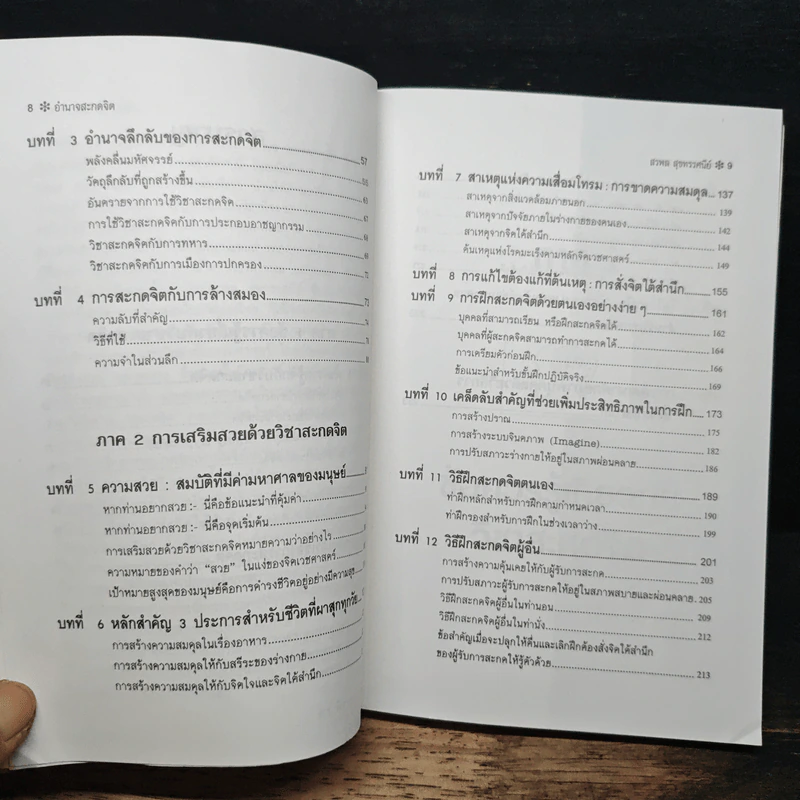 8 ✻ อำนาจสะกดจิต
บทที่ 3 อำนาจลึกลับของการสะกดจิต 57
พลังคลื่นมหัศจรรย์
วัตถุลึกลับที่ถูกสร้างขึ้น
อันตรายจากการใช้วิชาสะกดจิต
การใช้วิชาสะกดจิตกับการประกอบอาชญากรรม
วิชาสะกดจิตกับการทหาร
วิชาสะกดจิตกับการเมืองการปกครอง
บทที่ 4 การสะกดจิตกับการล้างสมอง 73
ความลับที่สำคัญ
วิธีที่ใช้
ความจำในส่วนลึก
ภาค 2 การเสริมสวยด้วยวิชาสะกดจิต
บทที่ 5 ความสวย : สมบัติที่มีค่ามหาศาลของมนุษย์
หากท่านอยากสวย :- นี่คือข้อแนะนำที่คุ้มค่า
หากท่านอยากสวย :- นี่คือจุดเริ่มต้น
การเสริมสวยด้วยวิชาสะกดจิตหมายความว่าอย่างไร
ความหมายของคำว่า "สวย" ในแง่ของจิตเวชศาสตร์
เป้าหมายสูงสุดของมนุษย์คือการดำรงชีวิตอยู่อย่างมีความสุข
บทที่ 6 หลักสำคัญ 3 ประการสำหรับชีวิตที่ผาสุกทุกวัย
การสร้างความสมดุลในเรื่องอาหาร
การสร้างความสมดุลให้กับสรีระของร่างกาย
การสร้างความสมดุลให้กับจิตใจและจิตใต้สำนึก
สรพล สุขทรรศนีย์ ✻ 9
บทที่ 7 สาเหตุแห่งความเสื่อมโทรม : การขาดความสมดุล 137
สาเหตุจากสิ่งแวดล้อมภายนอก 139
สาเหตุจากปัจจัยภายในร่างกายของคนเอง 142
สาเหตุจากจิตใต้สำนึก 144
ต้นเหตุแห่งโรคมะเร็งตามหลักจิตเวชศาสตร์ 149
บทที่ 8 การแก้ไขต้องแก้ที่ต้นเหตุ : การสั่งจิตใต้สำนึก 155
บทที่ 9 การฝึกสะกดจิตด้วยตนเองอย่างง่าย ๆ 161
บุคคลที่สามารถเรียน หรือฝึกสะกดจิตได้ 162
บุคคลที่ผู้สะกดจิตสามารถทำการสะกดได้ 164
การเตรียมตัวก่อนฝึก 166
ข้อแนะนำสำหรับขั้นฝึกปฏิบัติจริง 169
บทที่ 10 เคล็ดลับสำคัญที่ช่วยเพิ่มประสิทธิภาพในการฝึก 173
การสร้างปราณ 175
การสร้างระบบจินตภาพ (Imagine) 182
การปรับสภาวะร่างกายให้อยู่ในสภาพผ่อนคลาย 186
บทที่ 11 วิธีฝึกสะกดจิตตนเอง 189
ท่าฝึกหลักสำหรับการฝึกตามกำหนดเวลา 190
ท่าฝึกรองสำหรับการฝึกในช่วงเวลาว่าง 199
บทที่ 12 วิธีฝึกสะกดจิตผู้อื่น 201
การสร้างความคุ้นเคยให้กับผู้รับการสะกด 203
การปรับสภาวะผู้รับการสะกดให้อยู่ในสภาพสบายและผ่อนคลาย 205
วิธีฝึกสะกดจิตผู้อื่นในท่านอน 209
วิธีฝึกสะกดจิตผู้อื่นในท่านั่ง 212
ข้อสำคัญเมื่อจะปลุกให้ตื่นและเลิกฝึกต้องสั่งจิตใต้สำนึก
ของผู้รับการสะกดให้รู้ตัวด้วย 213